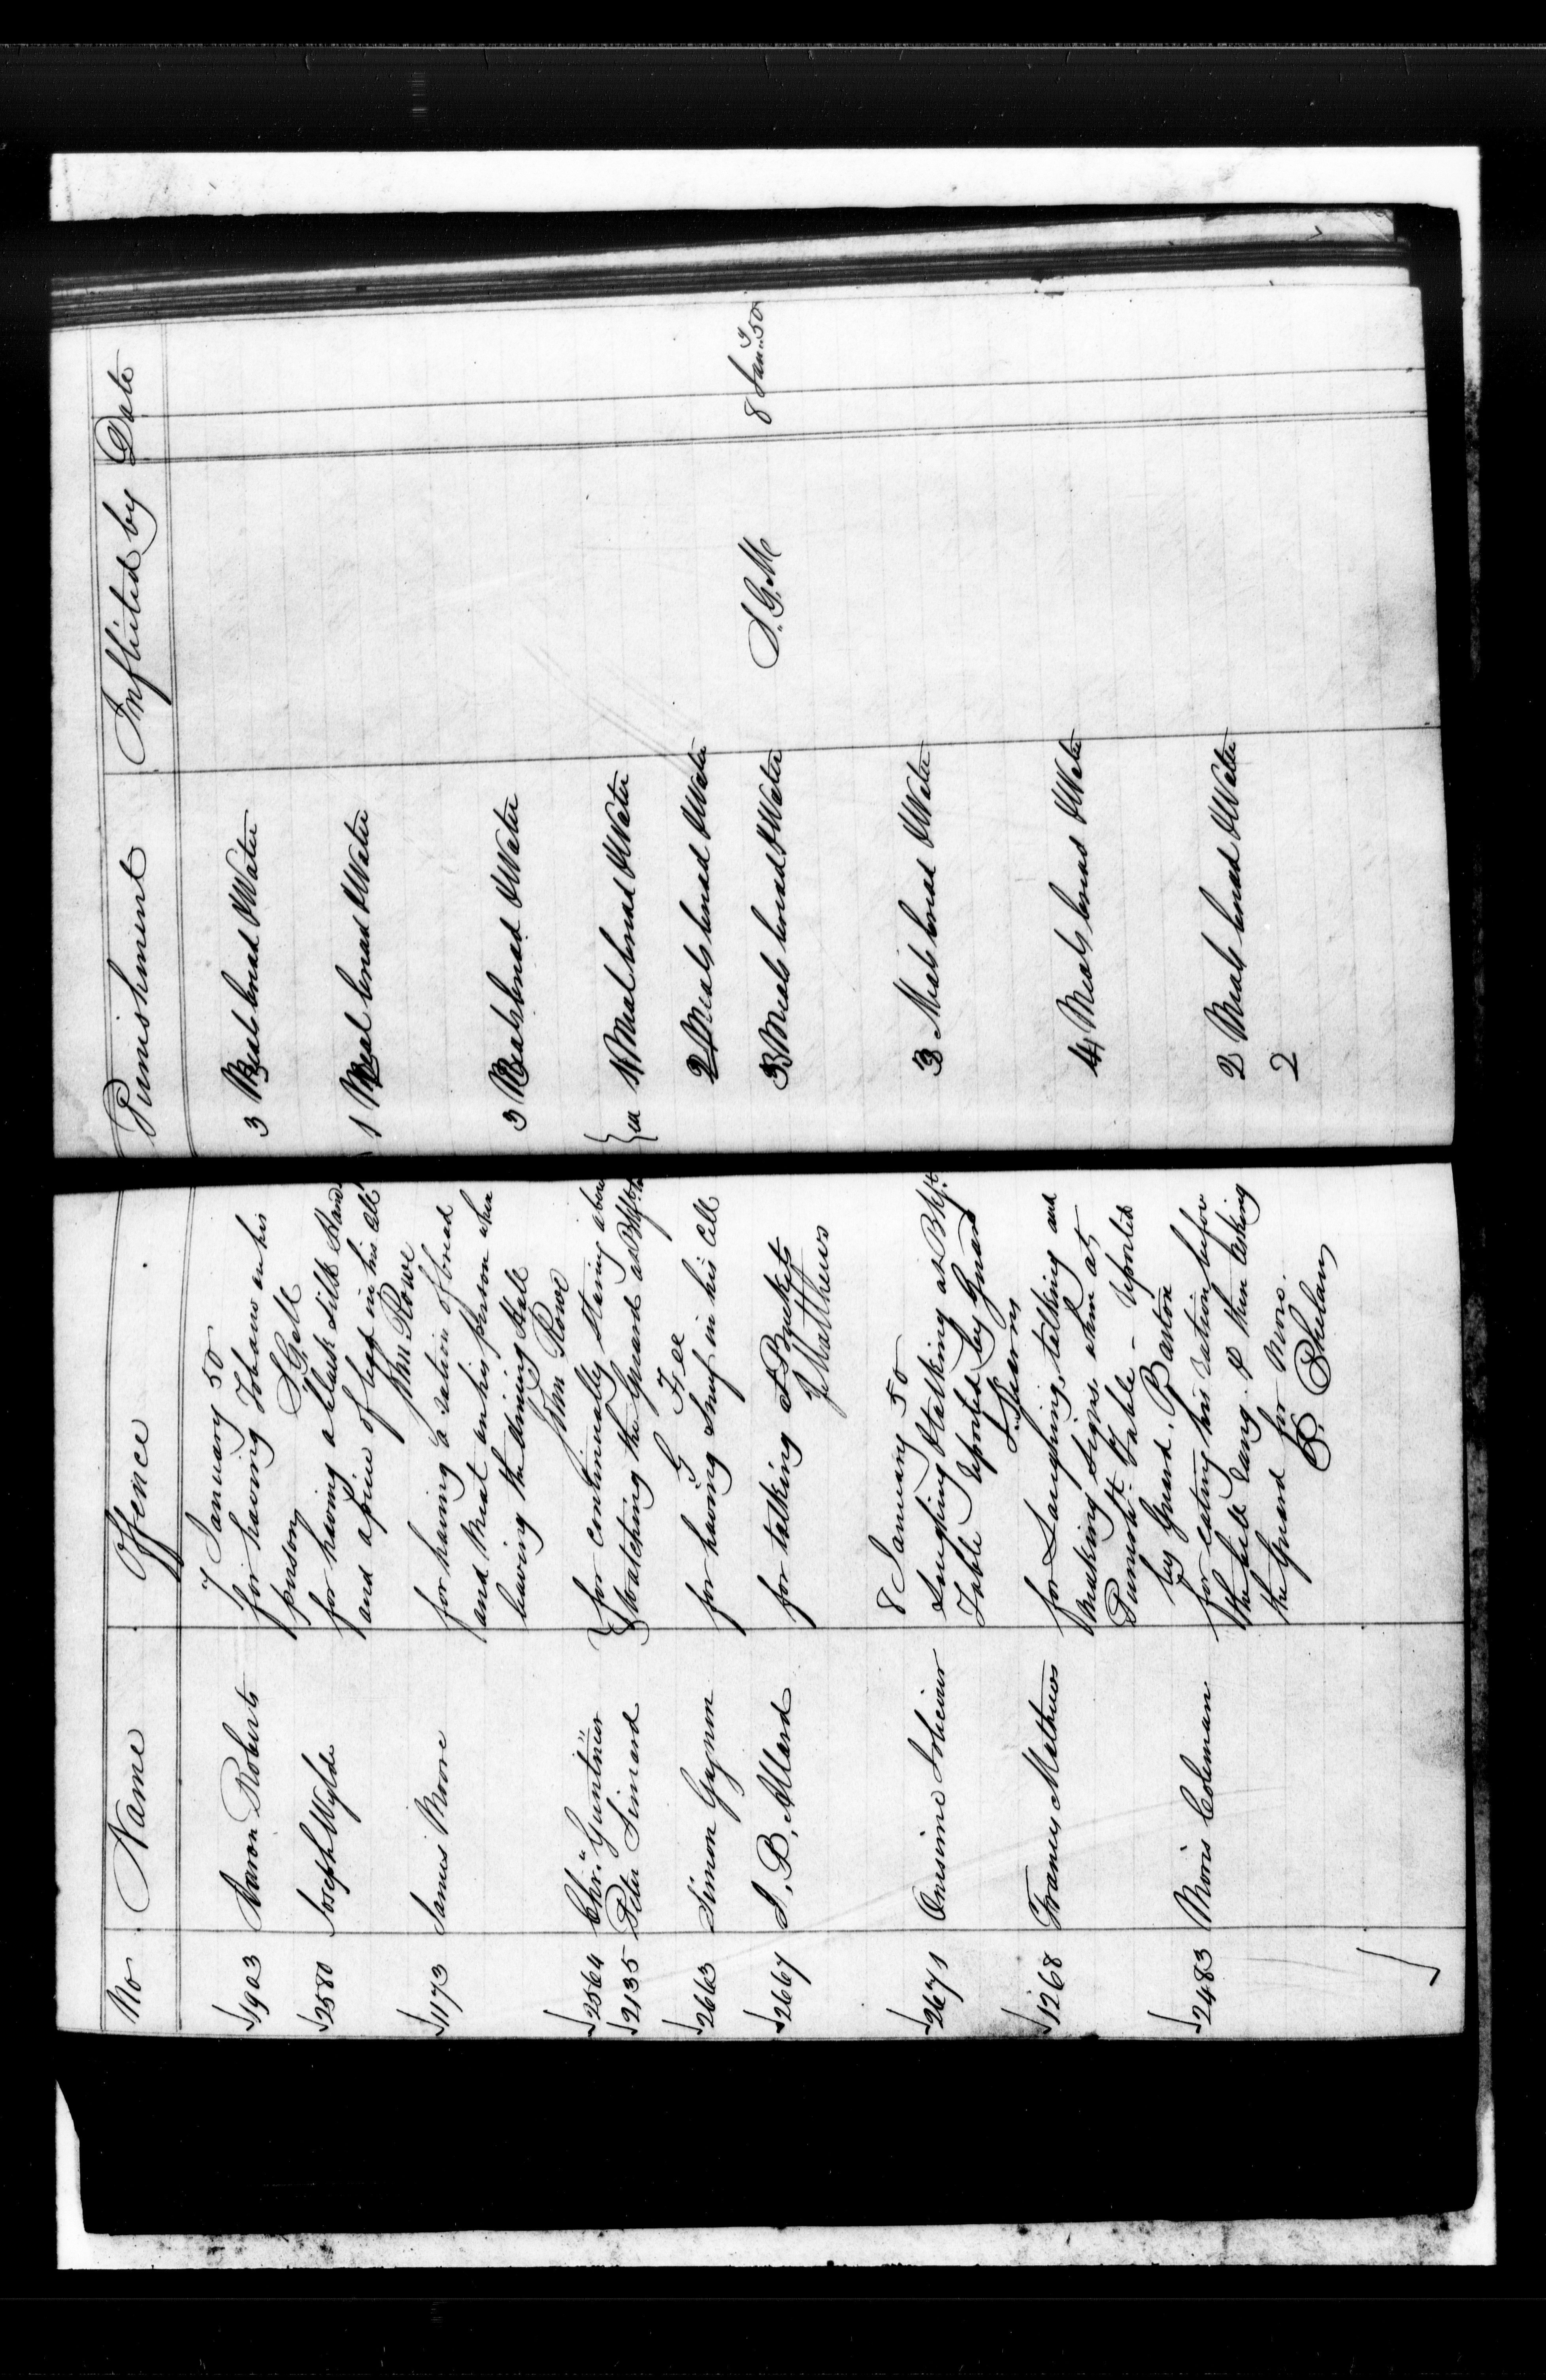 No Name Offence Punishment Inflicted by Date
7 January 50
1903 Aaron Roberts for having Tobacco on his 3 Meals bread & Water
person S Gell
2580 Joseph Wylde for having a black Silk Hand
and a piece of in his Cell 1 Meal bread & Water
Wm Rowe
1173 James Moore for having a ration of bread
and Meat on his person when 3 Meals bread & Water
leaving the dining Hall
Wm Rowe
2564 Chr. Guntner for continually Staring about
2135 Peter Simard Watching the Guard at Bkft ea 1 Meal bread & Water
G Fee
2663 Simon Gagnon for having Snuf in his Cell 2 Meals bread & Water
2667 J. B. Allard for talking at Buckets 3 Meals bread & Water S. G. M 8 Jany 50
J Matthews
8 January 50
2671 Onesime Laughing & talking at Bkft 3 Meals bread & Water
Table reported by Guard
1268 Francis Mathews for Laughing, talking and 4 Meals bread & Water
Making Signs when at
Punisht Table - reported
by Guard. Barton
2483 Moris Coleman for eating his ration before 2 Meals bread & Water
the bell rang. & then asking
the Guard for More. 2
Phelan